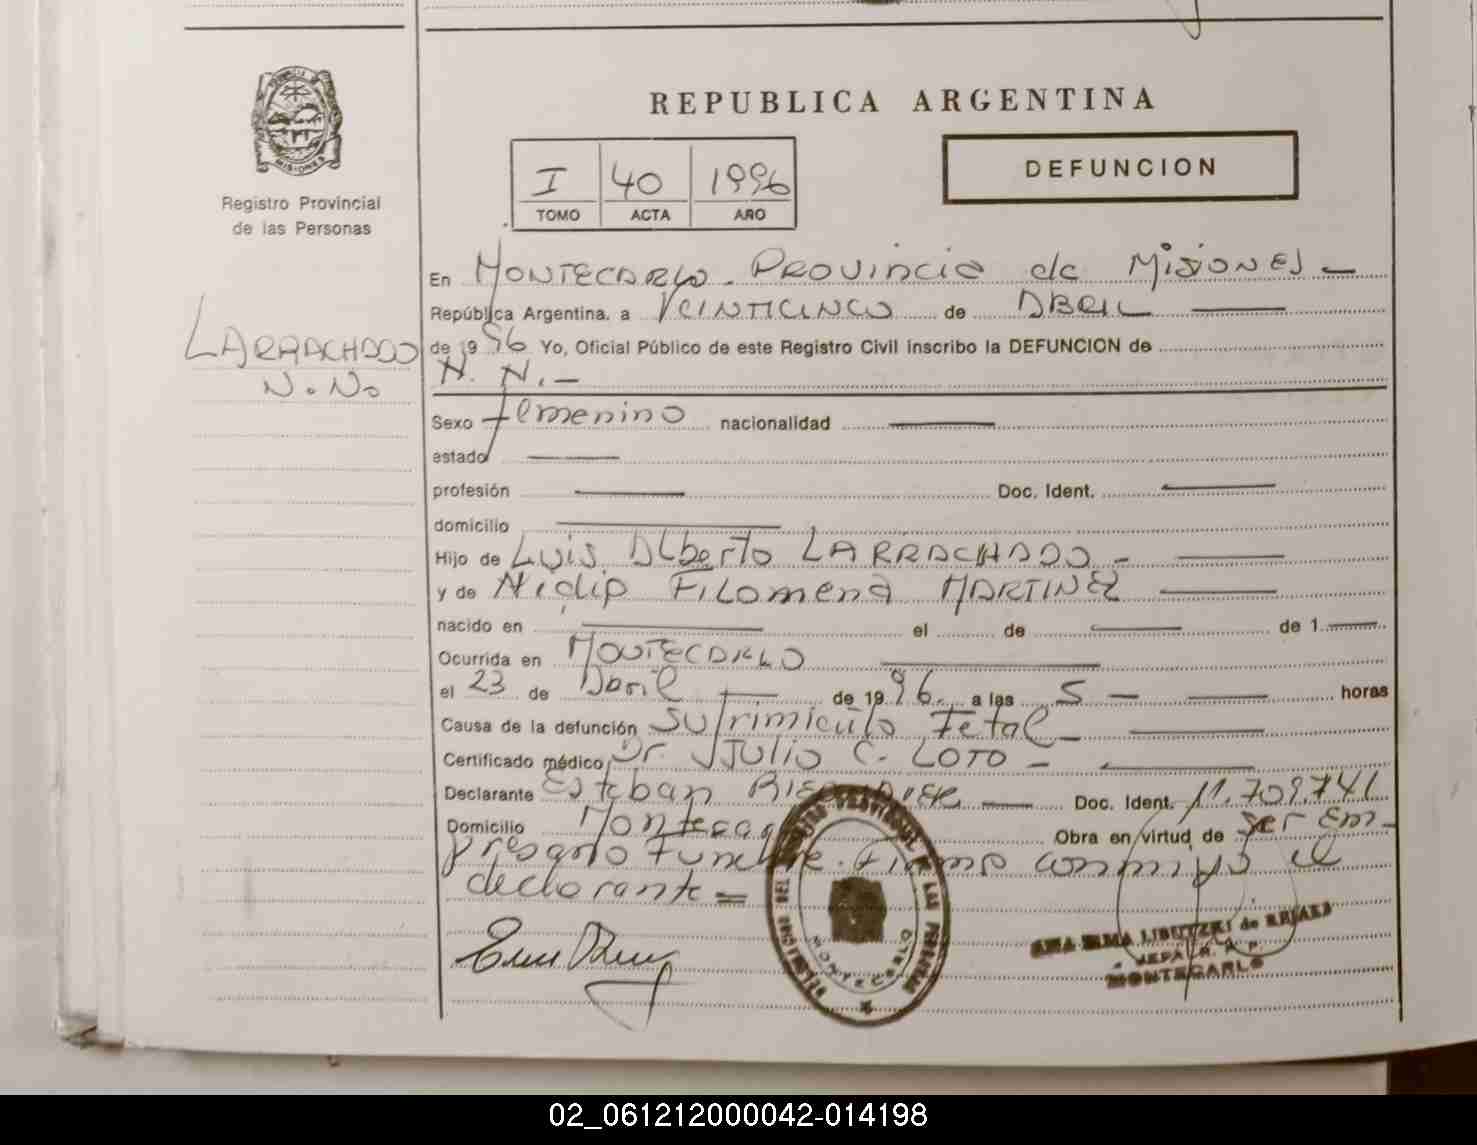 REPUBLICA ARGENTINA
DEFUNCION
I 40 1996
TOMO ACTA AÑO
PROVINCIA DE
MISIONES
Registro Provincial
de las Personas
LARRACHADO
N.No
En MONTECARLO - PROVINCIA de MISIONES -
República Argentina, a VEINTICINCO de ABRIL
de 1996 Yo, Oficial Público de este Registro Civil inscribo la DEFUNCION de
N. N. -
Sexo femenino nacionalidad
estado
profesión Doc. Ident.
domicilio
Hijo de LUIS ALberTo LARRACHADO -
y de Nidia FILOMENA MARTINEZ
nacido en el de de 1
Ocurrida en MONTECARLO
el 23 de Abril de 1996 a las 5 - horas
Causa de la defunción Sufrimiento Fetal -
Certificado médico Dr. JULIO C. LOTO -
Declarante Esteban Doc. Ident. 11.709.741
Domicilio Montecar Obra en virtud de ser Em-
presario Funebre. Firma conmigo el
declarante =
REGISTRO PROVINCIAL DE LAS PERSONAS
MONTECARLO
ANA IRMA de
MONTECARLO
02_061212000042-014198